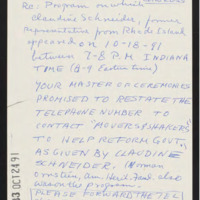 Re: Program on which
Claudine Schneider, former
Representative from Rhode Island
appeared on 10-18-91
between 7-8 P.M INDIANA
TIME (8-9 Eastern time)
YOUR MASTER OF CEREMONIES
PROMISED TO RESTATE THE
TELEPHONE NUMBER TO
CONTACT "MOVERS & SHAKERS"
TO HELP REFORM GOVT.,
AS GIVEN BY CLAUDINE
SCHNEIDER. (Norman
Ornstein, Am. Herit. Fnd. also
was on the program.
PLEASE FORWARD THE TEL
OCT 24 91